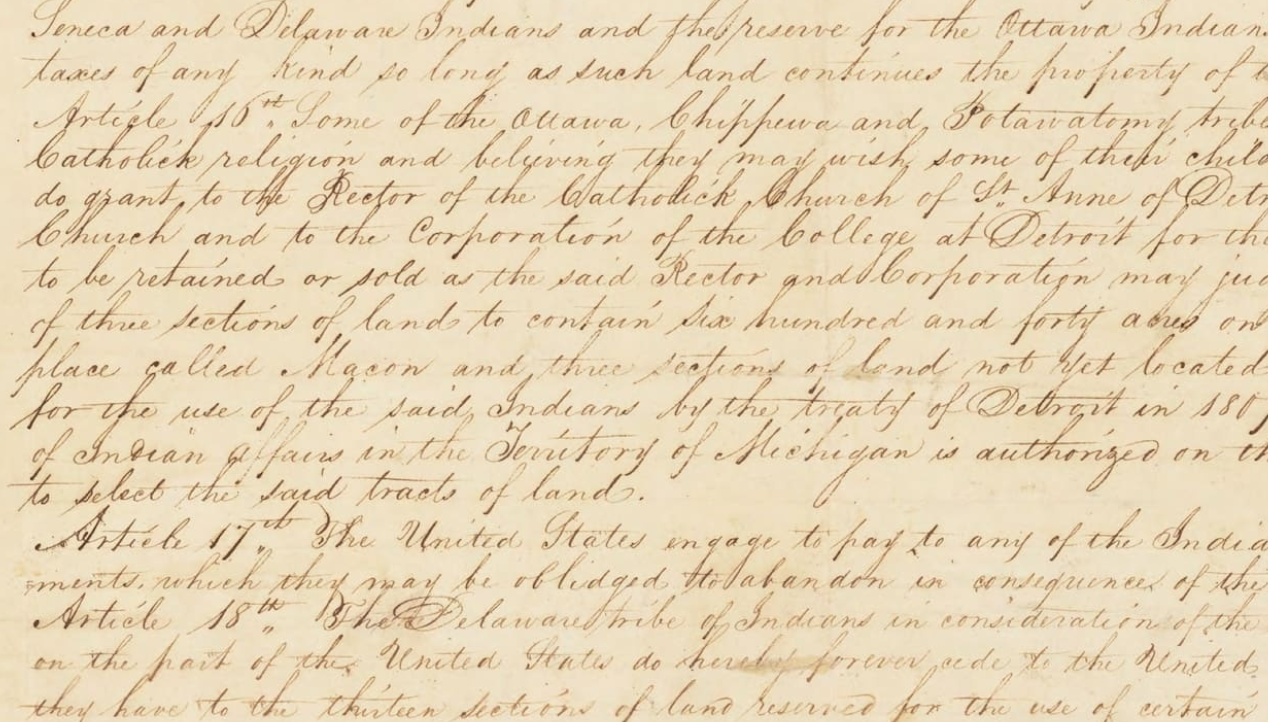 Seneca and Delaware Indians and the reserve for the Ottawa Indian
taxes of any kind so long as such land continues the property of
Article 16th Some of the Ottawa, Chippewa and Potawatomy tribe
Catholick religion and believing they may wish some of their child
do grant to the Rector of the Catholick Church of St. Anne of Detr
Church and to the Corporation of the College at Detroit for the
to be retained or sold as the said Rector and Corporation may jud
of three sections of land to contain six hundred and forty acres on
place called Macon and three sections of land not yet located
for the use of the said Indians by the treaty of Detroit in 180
of Indian affairs in the Territory of Michigan is authorized on th
to select the said tracts of land.
Article 17th The United States engage to pay to any of the India
ments. which they may be oblidged to abandon in consequence of the
Article 18th The Delaware tribe of Indians in consideration of the
on the part of the United States do hereby forever cede to the United
they have to the thirteen sections of land reserved for the use of certain